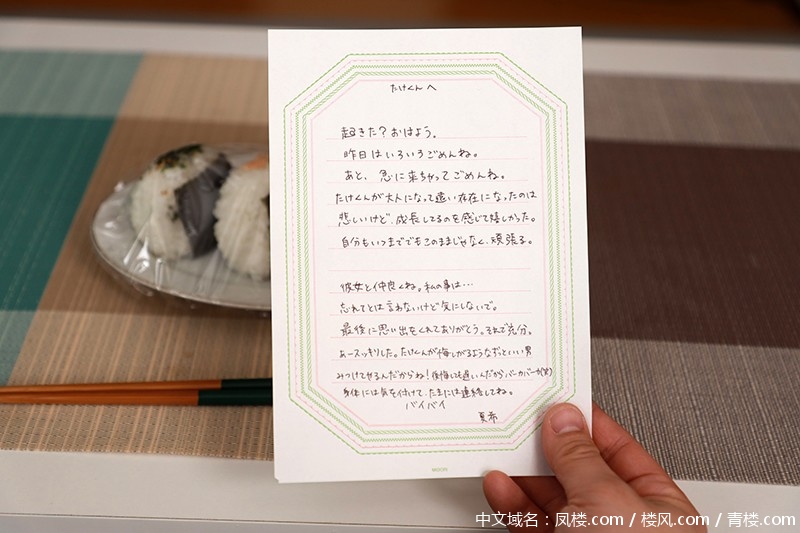 たけくんへ
起きた？おはよう。
昨日はいろいろごめんね。
あと、急に来ちゃってごめんね。
たけくんが大人になって遠い存在になったのは
悲しいけど、成長してるのを感じて嬉しかった。
自分もいつまでもこのままじゃなく、頑張る。
彼女と仲良くね。私の事は…
忘れてとは言わないけど気にしないで。
最後に思い出をくれてありがとう。それで充分。
あースッキリした。たけくんが悔しがるようなずっといい男
みつけてやるんだからね！後悔しても遅いんだからバーカバーカ(笑)
身体には気を付けて、たまには連絡してね。
バイバイ
夏希
中文域名：凤楼.com / 楼风.com / 青楼.com